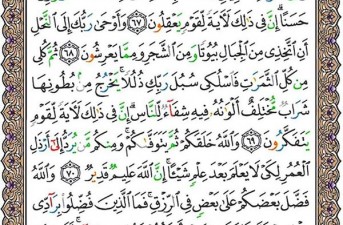 حَسَنًا ۗ إِنَّ فِي ذَٰلِكَ لَآيَةً لِّقَوْمٍ يَعْقِلُونَ ٦٧ وَأَوْحَىٰ رَبُّكَ إِلَى النَّحْلِ
أَنِ اتَّخِذِي مِنَ الْجِبَالِ بُيُوتًا وَمِنَ الشَّجَرِ وَمِمَّا يَعْرِشُونَ ٦٨ ثُمَّ كُلِي
مِن كُلِّ الثَّمَرَاتِ فَاسْلُكِي سُبُلَ رَبِّكِ ذُلُلًا ۚ يَخْرُجُ مِن بُطُونِهَا
شَرَابٌ مُّخْتَلِفٌ أَلْوَانُهُ فِيهِ شِفَاءٌ لِّلنَّاسِ ۗ إِنَّ فِي ذَٰلِكَ لَآيَةً لِّقَوْمٍ
يَتَفَكَّرُونَ ٦٩ وَاللَّهُ خَلَقَكُمْ ثُمَّ يَتَوَفَّاكُمْ ۚ وَمِنكُم مَّن يُرَدُّ إِلَىٰ أَرْذَلِ
الْعُمُرِ لِكَيْ لَا يَعْلَمَ بَعْدَ عِلْمٍ شَيْئًا ۚ إِنَّ اللَّهَ عَلِيمٌ قَدِيرٌ ٧٠ وَاللَّهُ
فَضَّلَ بَعْضَكُمْ عَلَىٰ بَعْضٍ فِي الرِّزْقِ ۚ فَمَا الَّذِينَ فُضِّلُوا بِرَادِّي